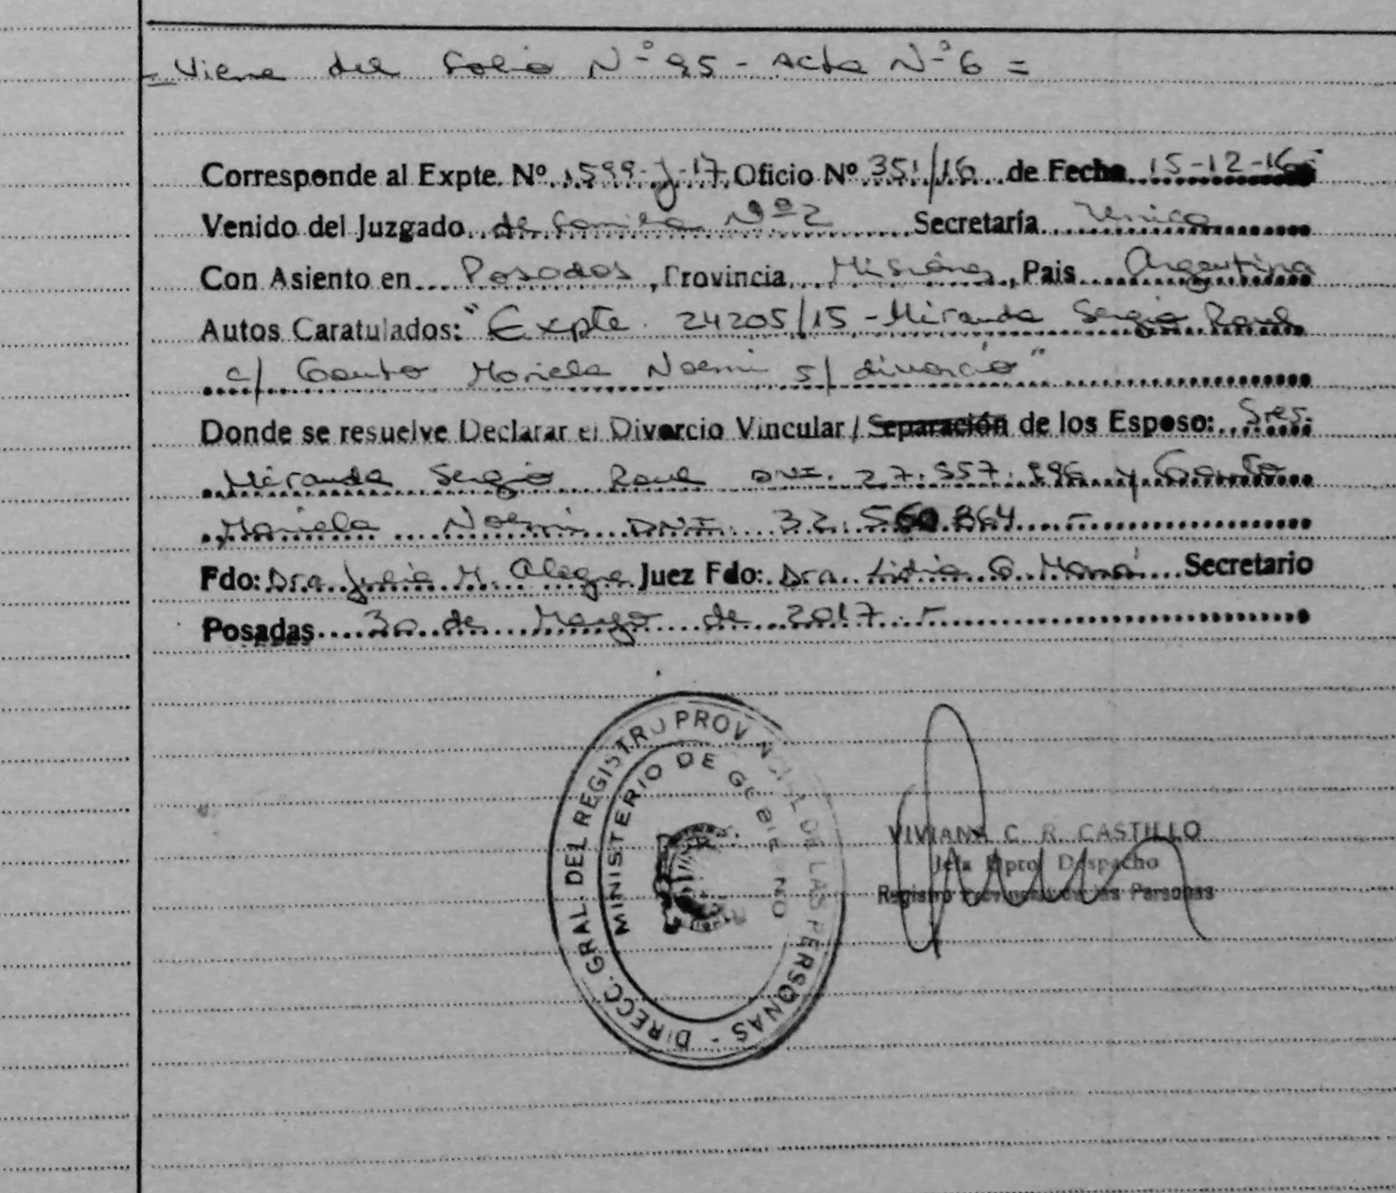 = Viene del folio N° 95 - Acta N° 6 =
Corresponde al Expte. Nº 1599-J-17 Oficio Nº 351/16 de Fecha 15-12-16
Venido del Juzgado de Familia Nº 2 Secretaría Unica
Con Asiento en Posadas, Provincia Misiones, Pais Argentina
Autos Caratulados: "Expte. 24205/15 - Miranda Sergio Raul
c/ Gauto Mariela Noemi s/ divorcio"
Donde se resuelve Declarar el Divorcio Vincular / Separación de los Esposo: Sres.
Miranda Sergio Raul DNI. 27.357.896 y Gauto
Mariela Noemi DNI 32.560.864
Fdo: Dra Julia M. Alegre Juez Fdo: Dra. Lidia Secretario
Posadas 30 de Marzo de 2017
DIRECC. GRAL. DEL REGISTRO PROVINCIAL DE LAS PERSONAS -
MINISTERIO DE GOBIERNO
VIVIANA C. R. CASTILLO
Jefa Dpto. Despacho
Registro Provincial de las Personas